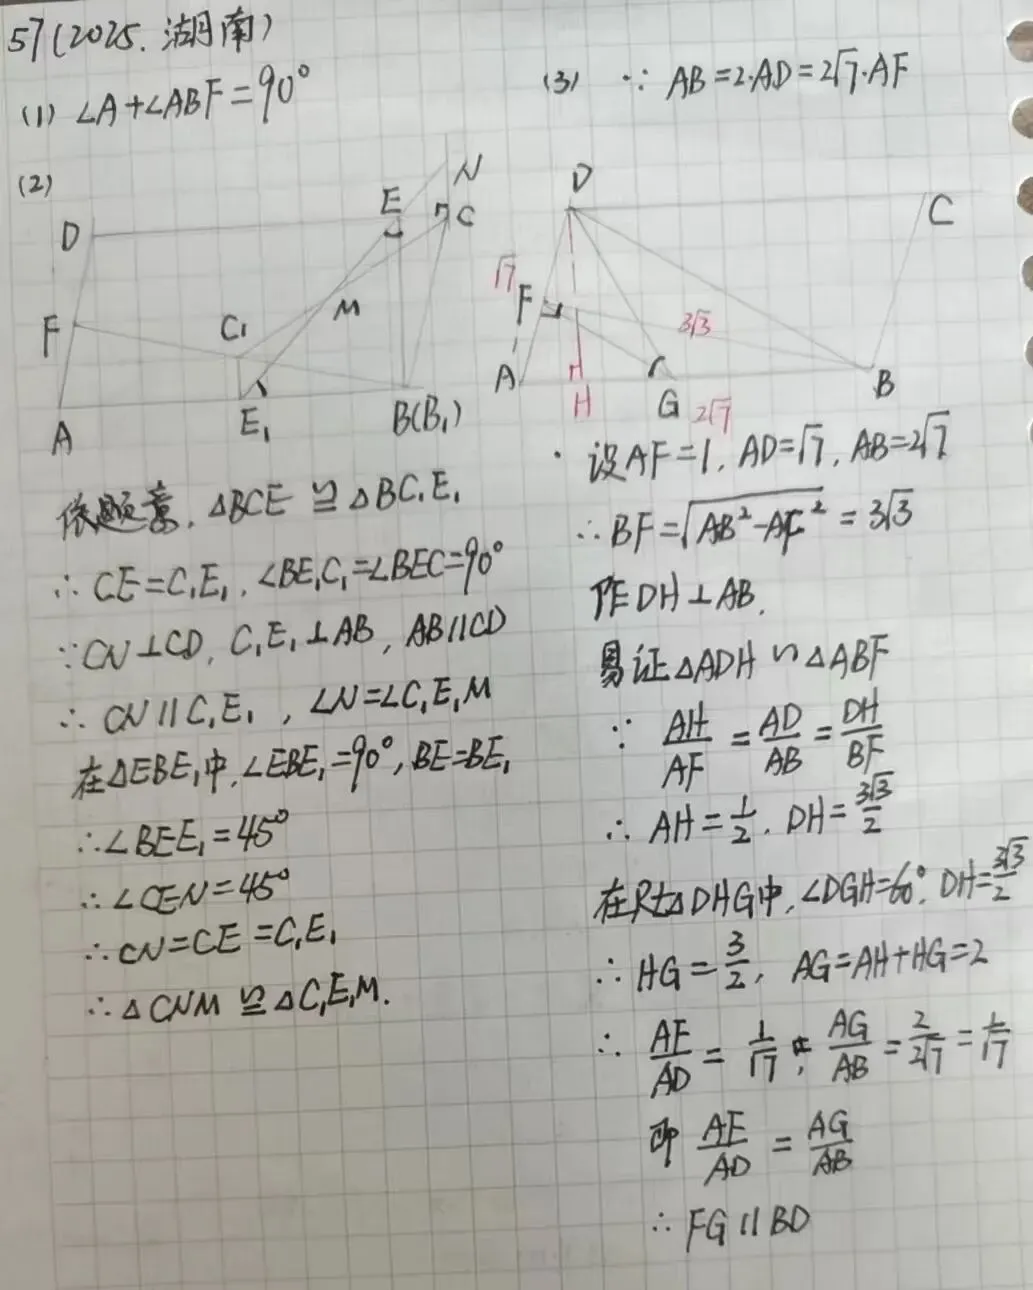 57(2025.湖南)
(1) ∠A+∠ABF=90°
(2)
D
E
N
C
F
C₁
M
A
E₁
B(B₁)
依题意,△BCE≌△BC₁E₁
∴CE=C₁E₁,∠BE₁C₁=∠BEC=90°
∵CN⊥CD,C₁E₁⊥AB,AB∥CD
∴CN∥C₁E₁,∠N=∠C₁E₁M
在△EBE₁中,∠EBE₁=90°,BE=BE₁
∴∠BEE₁=45°
∴∠CEN=45°
∴CN=CE=C₁E₁
∴△CNM≌△C₁E₁M.
(3) ∵AB=2·AD=2√7·AF
D
C
√7
F
3√3
A
H
G
2√7
B
设AF=1,AD=√7,AB=2√7
∴BF=√(AB²-AF²)=3√3
作DH⊥AB,
易证△ADH∽△ABF
∵AH/AF=AD/AB=DH/BF
∴AH=1/2,DH=3√3/2
在Rt△DHG中,∠DGH=60°,DH=3√3/2
∴HG=3/2,AG=AH+HG=2
∴AF/AD=1/√7,AG/AB=2/2√7=1/√7
即AF/AD=AG/AB
∴FG∥BD